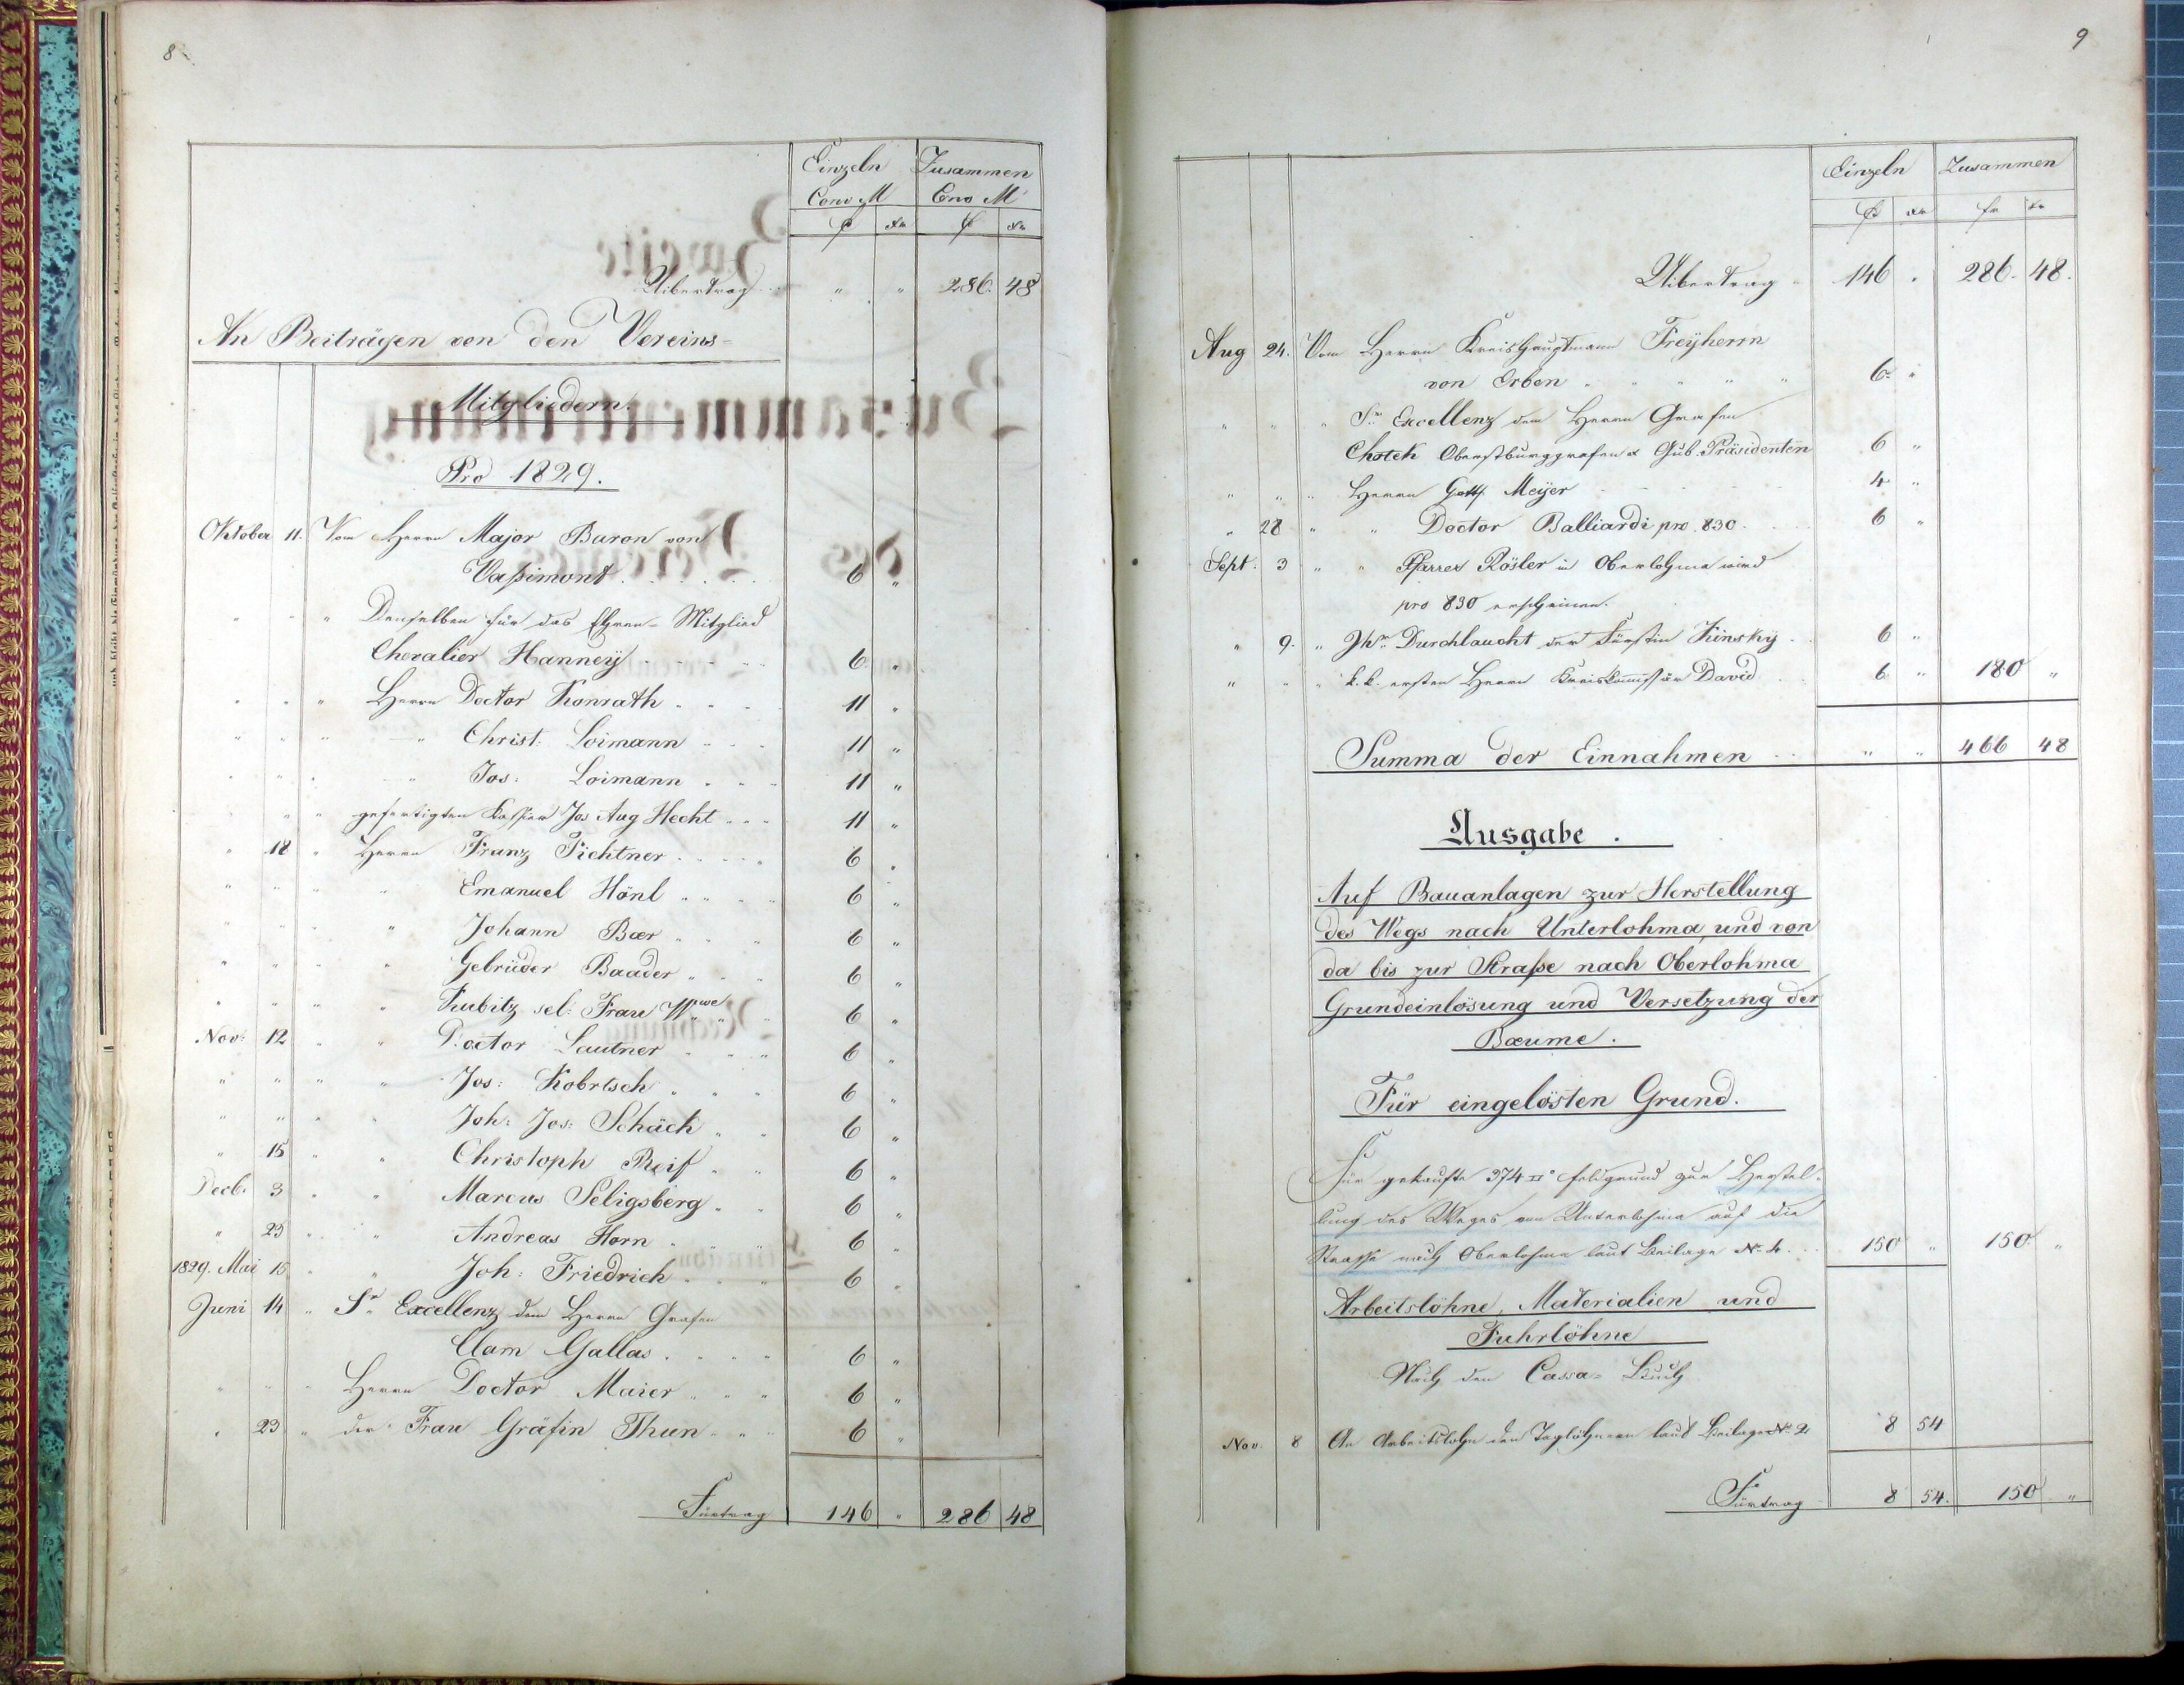 8
Einzeln Zusammen
Conv M Cnv M
f xr f xr
Uibertrag " " 286. 48
An Beiträgen von den Vereins-
Mitgliedern.
Pro 1829.
Oktober 11. Vom Herrn Major Baron von
Vaßimont . . . . . 6 "
" " " Denselben für das Ehren-Mitglied
Chevalier Hanney . . . . . 6 "
" " " Herrn Doctor Konrath . . . . 11 "
" " " " Christ: Loimann . . . 11 "
" " " " Jos: Loimann . . . 11 "
" " gefertigten Kassier Jos Aug Hecht . . . 11 "
" 18 " Herrn Franz Fichtner . . . . 6 "
" " " " Emanuel Hönl . . . . 6 "
" " " " Johann Bær . . . 6 "
" " " " Gebrüder Baader . . . 6 "
" " " " Kubitz sel: Frau Wwe " " 6 "
Nov: 12 " " Doctor Lautner . . . 6 "
" " " " Jos: Kobrtsch . . . 6 "
" " " " Joh: Jos: Schäck . . 6 "
" 15 " " Christoph Reif . . . 6 "
Decb. 3 " " Marcus Seligsberg . . 6 "
" 25 " " Andreas Horn . . . 6 "
1829. Mai 15 " " Joh: Friedrich . . . 6 "
Juni 14 " Sr Excellenz dem Herrn Grafen
Clam Gallas . . . . 6 "
" " " Herrn Doctor Maier . . . 6 "
" 23 " der Frau Gräfin Thun . . . 6 "
Fürtrag 146 " 286 48
9
Einzeln Zusammen
f xr fr xr
Uibertrag 146 . 286. 48.
Aug 24. Vom Herrn Kreishauptmann Freyherrn
von Erben . " " " " 6. "
" " " Sr Excellenz dem Herrn Grafen
Chotek Oberstburggrafen & Gub. Präsidenten 6 "
" " " Herrn Gottf. Meyer . . . . . 4 "
" 28 " " Doctor Balliardi pro 830 . . . 6 "
Sept. 3 " " Pfarrer Rösler in Oberlohma wird
pro 830 erscheinen.
" 9. " Ihr Durchlaucht der Fürstin Kinsky . 6 "
" " " k.k. ersten Herrn Kreiskommissär David . . 6 " 180 "
Summa der Einnahmen . . " " 466 48
Ausgabe .
Auf Bauanlagen zur Herstellung
des Wegs nach Unterlohma, und von
da bis zur Straße nach Oberlohma
Grundeinlösung und Versetzung der
Bæume.
Für eingelösten Grund.
Für gekaufte 374 □° Feldgrund zur Herstel-
lung des Weges von Unterlohma auf die
Strasse nach Oberlohma laut Beilage No 4. . . 150 " 150. "
Arbeitslöhne, Materialien und
Fuhrlöhne
Nach den Cassa-Buch
Nov. 8 An Arbeitslohn den Taglöhnern laut Beilage No 2 8 54
Fürtrag 8 54. 150 "